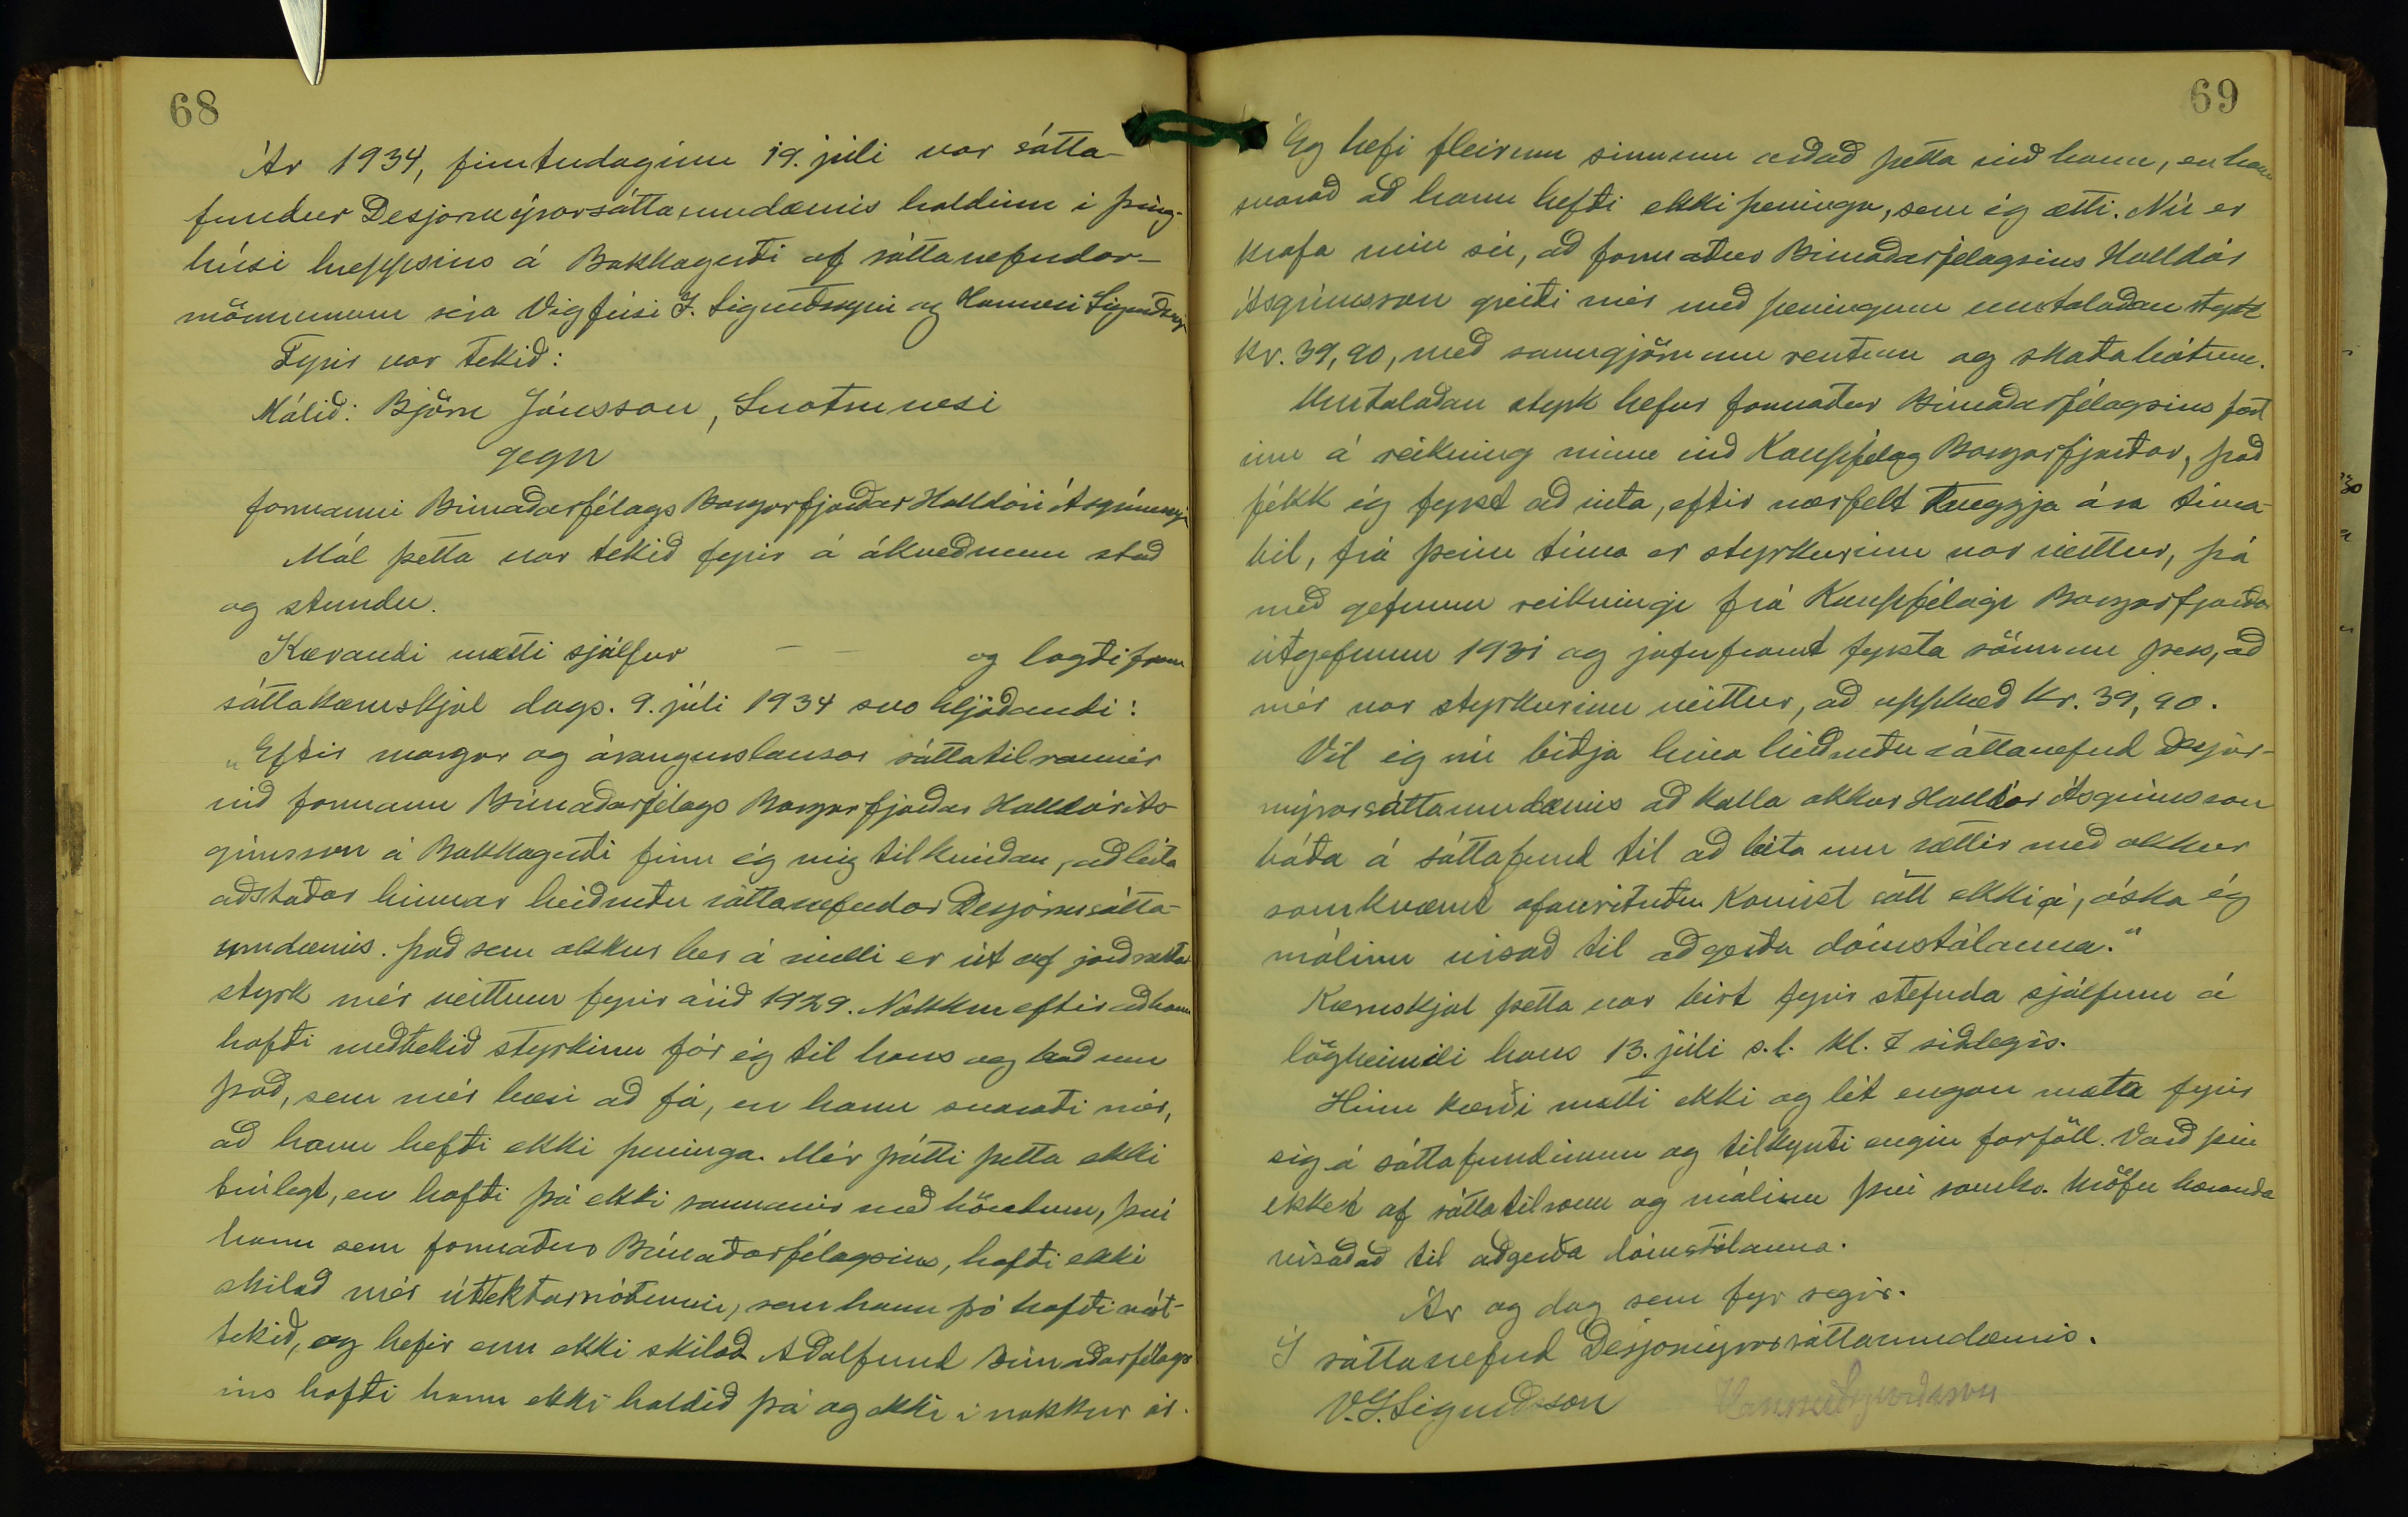 68
Ár 1934, fimtudaginn 19. júlí var sátta-
fundur Desjarmýrarsáttaumdæmis haldinn í þing-
húsi hreppsins á Bakkagerði af sáttanefndar-
mönnunum séra Vigfúsi I. Sigurðssyni og Hannesi Sigurðssyni
Fyrir var tekið:
Málið: Björn Jónsson, Snotrunesi
gegn
formanni Búnaðarfélags Borgarfjarðar Halldóri Ásgrímssyni
Mál þetta var tekið fyrir á ákveðnum stað
og stundu.
Kærandi mætti sjálfur — — og lagði fram
sáttakæruskjal dags. 9. júlí 1934 svo hljóðandi:
„Eftir margar og árangurslausar sáttatilraunir
við formann Búnaðarfélags Borgarfjarðar Halldór Ás-
grímsson á Bakkagerði finn ég mig tilknúðan, að leita
aðstoðar hinnar heiðruðu sáttanefndar Desjarmsátta-
umdæmis. Það sem okkur ber á milli er út af jarðræktar
styrk mér veittum fyrir árið 1929. Nokkru eftir að hann
hafði meðtekið styrkinn fór ég til hans og bað um
það, sem mér bæri að fá, en hann svaraði mér,
að hann hefði ekki peninga. Mér þótti þetta ekki
trúlegt, en hafði þá ekki sannanir með höndum, því
hann sem formaður Búnaðarfélagsins, hafði ekki
skilað mér úttektarnótunni, sem hann þó hafði mót-
tekið, og hefir enn ekki skilað. Aðalfund Búnaðarfélags
ins hafði hann ekki haldið þá og ekki í nokkur ár.
69
Ég hefi fleirum sinnum rætt þetta við hann, en hann
svarað að hann hefði ekki peninga, sem ég ætti. Nú er
krafa mín sú, að formaður Búnaðarfélagsins Halldór
Ásgrímsson greiði mér með peningum umtalaðan styrk
kr. 39,90, með sanngjörnum rentum og skaðabótum.
Umtalaðan styrk hefur formaður Búnaðarfélagsins fært
inn á reikning minn við Kaupfélag Borgarfjarðar, það
fékk ég fyrst að vita, eftir nærfelt tveggja ára tíma-
bil, frá þeim tíma er styrkurinn var veittur, þá
með gefnum reikningi frá Kaupfélagi Borgarfjarðar
útgefnum 1931 og jafnframt fyrsta sönnun þess, að
mér var styrkurinn veittur, að upphæð kr. 39,90.
Vil ég nú biðja hina heiðruðu sáttanefnd Desjar-
mýrarsáttaumdæmis að kalla okkur Halldór Ásgrímsson
báða á sáttafund til að leita um sættir með okkur
samkvæmt ofanrituðu. Komist sátt ekki á, óska ég
málinu vísað til aðgerða dómstólanna.“
Kæruskjal þetta var birt fyrir stefnda sjálfum á
lögheimili hans 13. júlí s.l. kl. 7 síðdegis.
Hinn kærði mætti ekki og lét engan mæta fyrir
sig á sáttafundinum og tilkynti engin forföll. Varð því
ekkert af sáttatilraun og málinu því samkv. kröfu kæranda
vísað að til aðgerða dómstólanna.
Ár og dag sem fyr segir.
Í sáttanefnd Desjarmýrarsáttaumdæmis.
V.I. Sigurðsson Hannes Sigurðsson